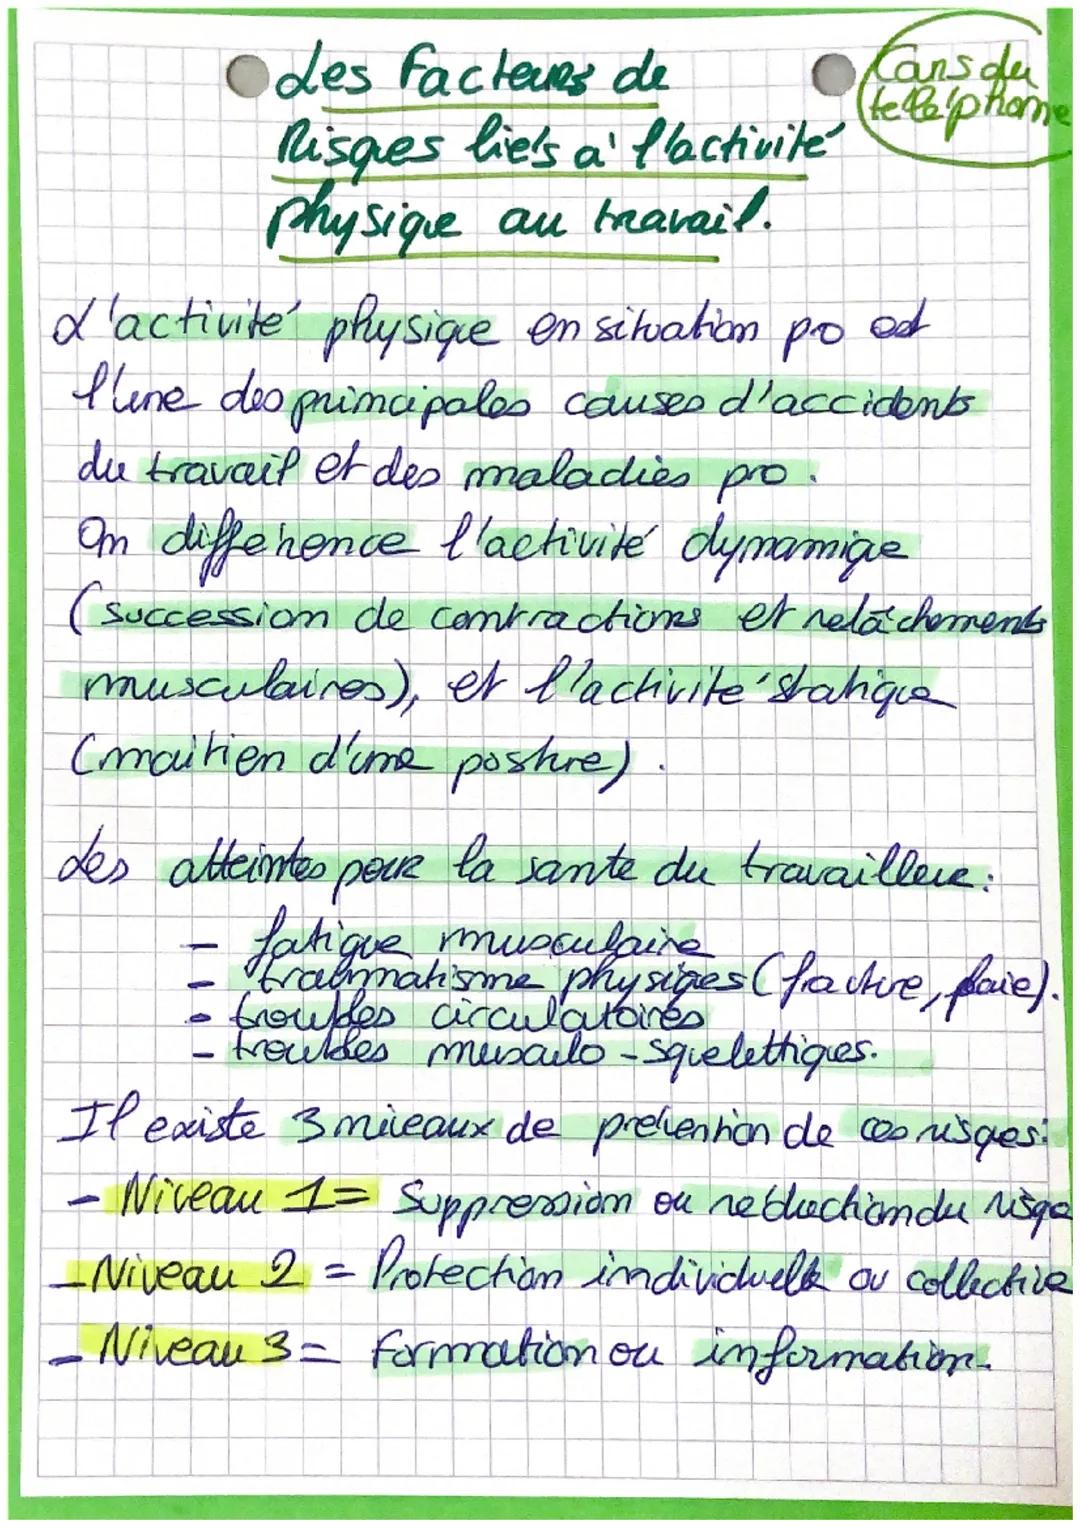 Les Facteurs de
Risques liés à l'activité
physique au travail.
Cans du
téléphone
L'activité physique en situation pro est
l'une des principales causes d'accidents
du travail et des maladies pro.
On différence l'activité dynamique
(succession de contractions et relâchements
musculaires), et l'activité statique
(maitien d'une posture).
Les atteintes pour la santé du travailleur:
- fatigue musculaire
- traumatisme physiques (fracture, plaie).
- troubles circulatoires
- troubles musculo-squelettiques.
Il existe 3 niveaux de prévention de ces risques:
- Niveau 1 = Suppression ou réduction du risque
- Niveau 2 = Protection individuelle ou collective
- Niveau 3 = Formation ou information.